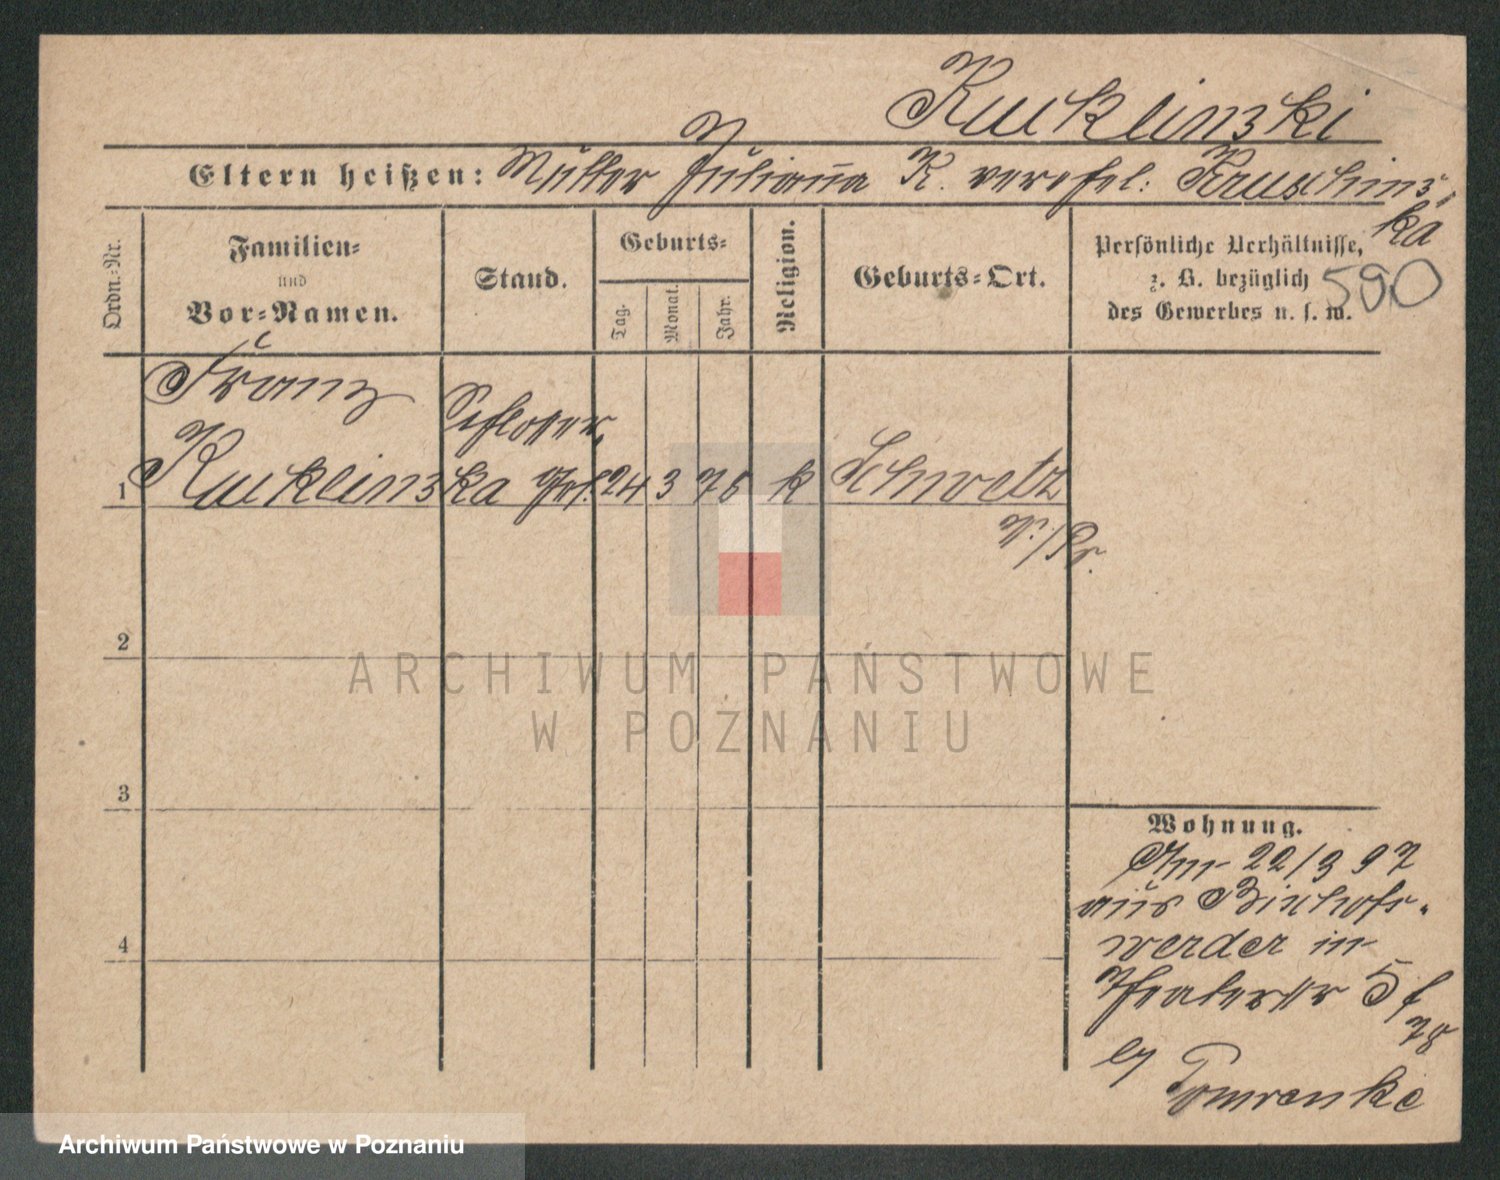 Kucklinski
Eltern heißen: Mutter Juliana K. verehel. Kruschins-
ka
Ordn.-Nr.
Familien-
und
Vor-Namen.
Stand.
Geburts-
Tag.
Monat.
Jahr.
Religion.
Geburts-Ort.
Persönliche Verhältnisse,
z. B. bezüglich
des Gewerbes u. s. w.
590
Franz
Schlosser
1 Kucklinski 24 3 76 k Schwetz
W./Pr.
2
3
4
Wohnung.
22/3 97
aus Bischofs-
werder in
Theaterstr 5
by Pomrenke
ARCHIWUM PAŃSTWOWE
W POZNANIU
Archiwum Państwowe w Poznaniu